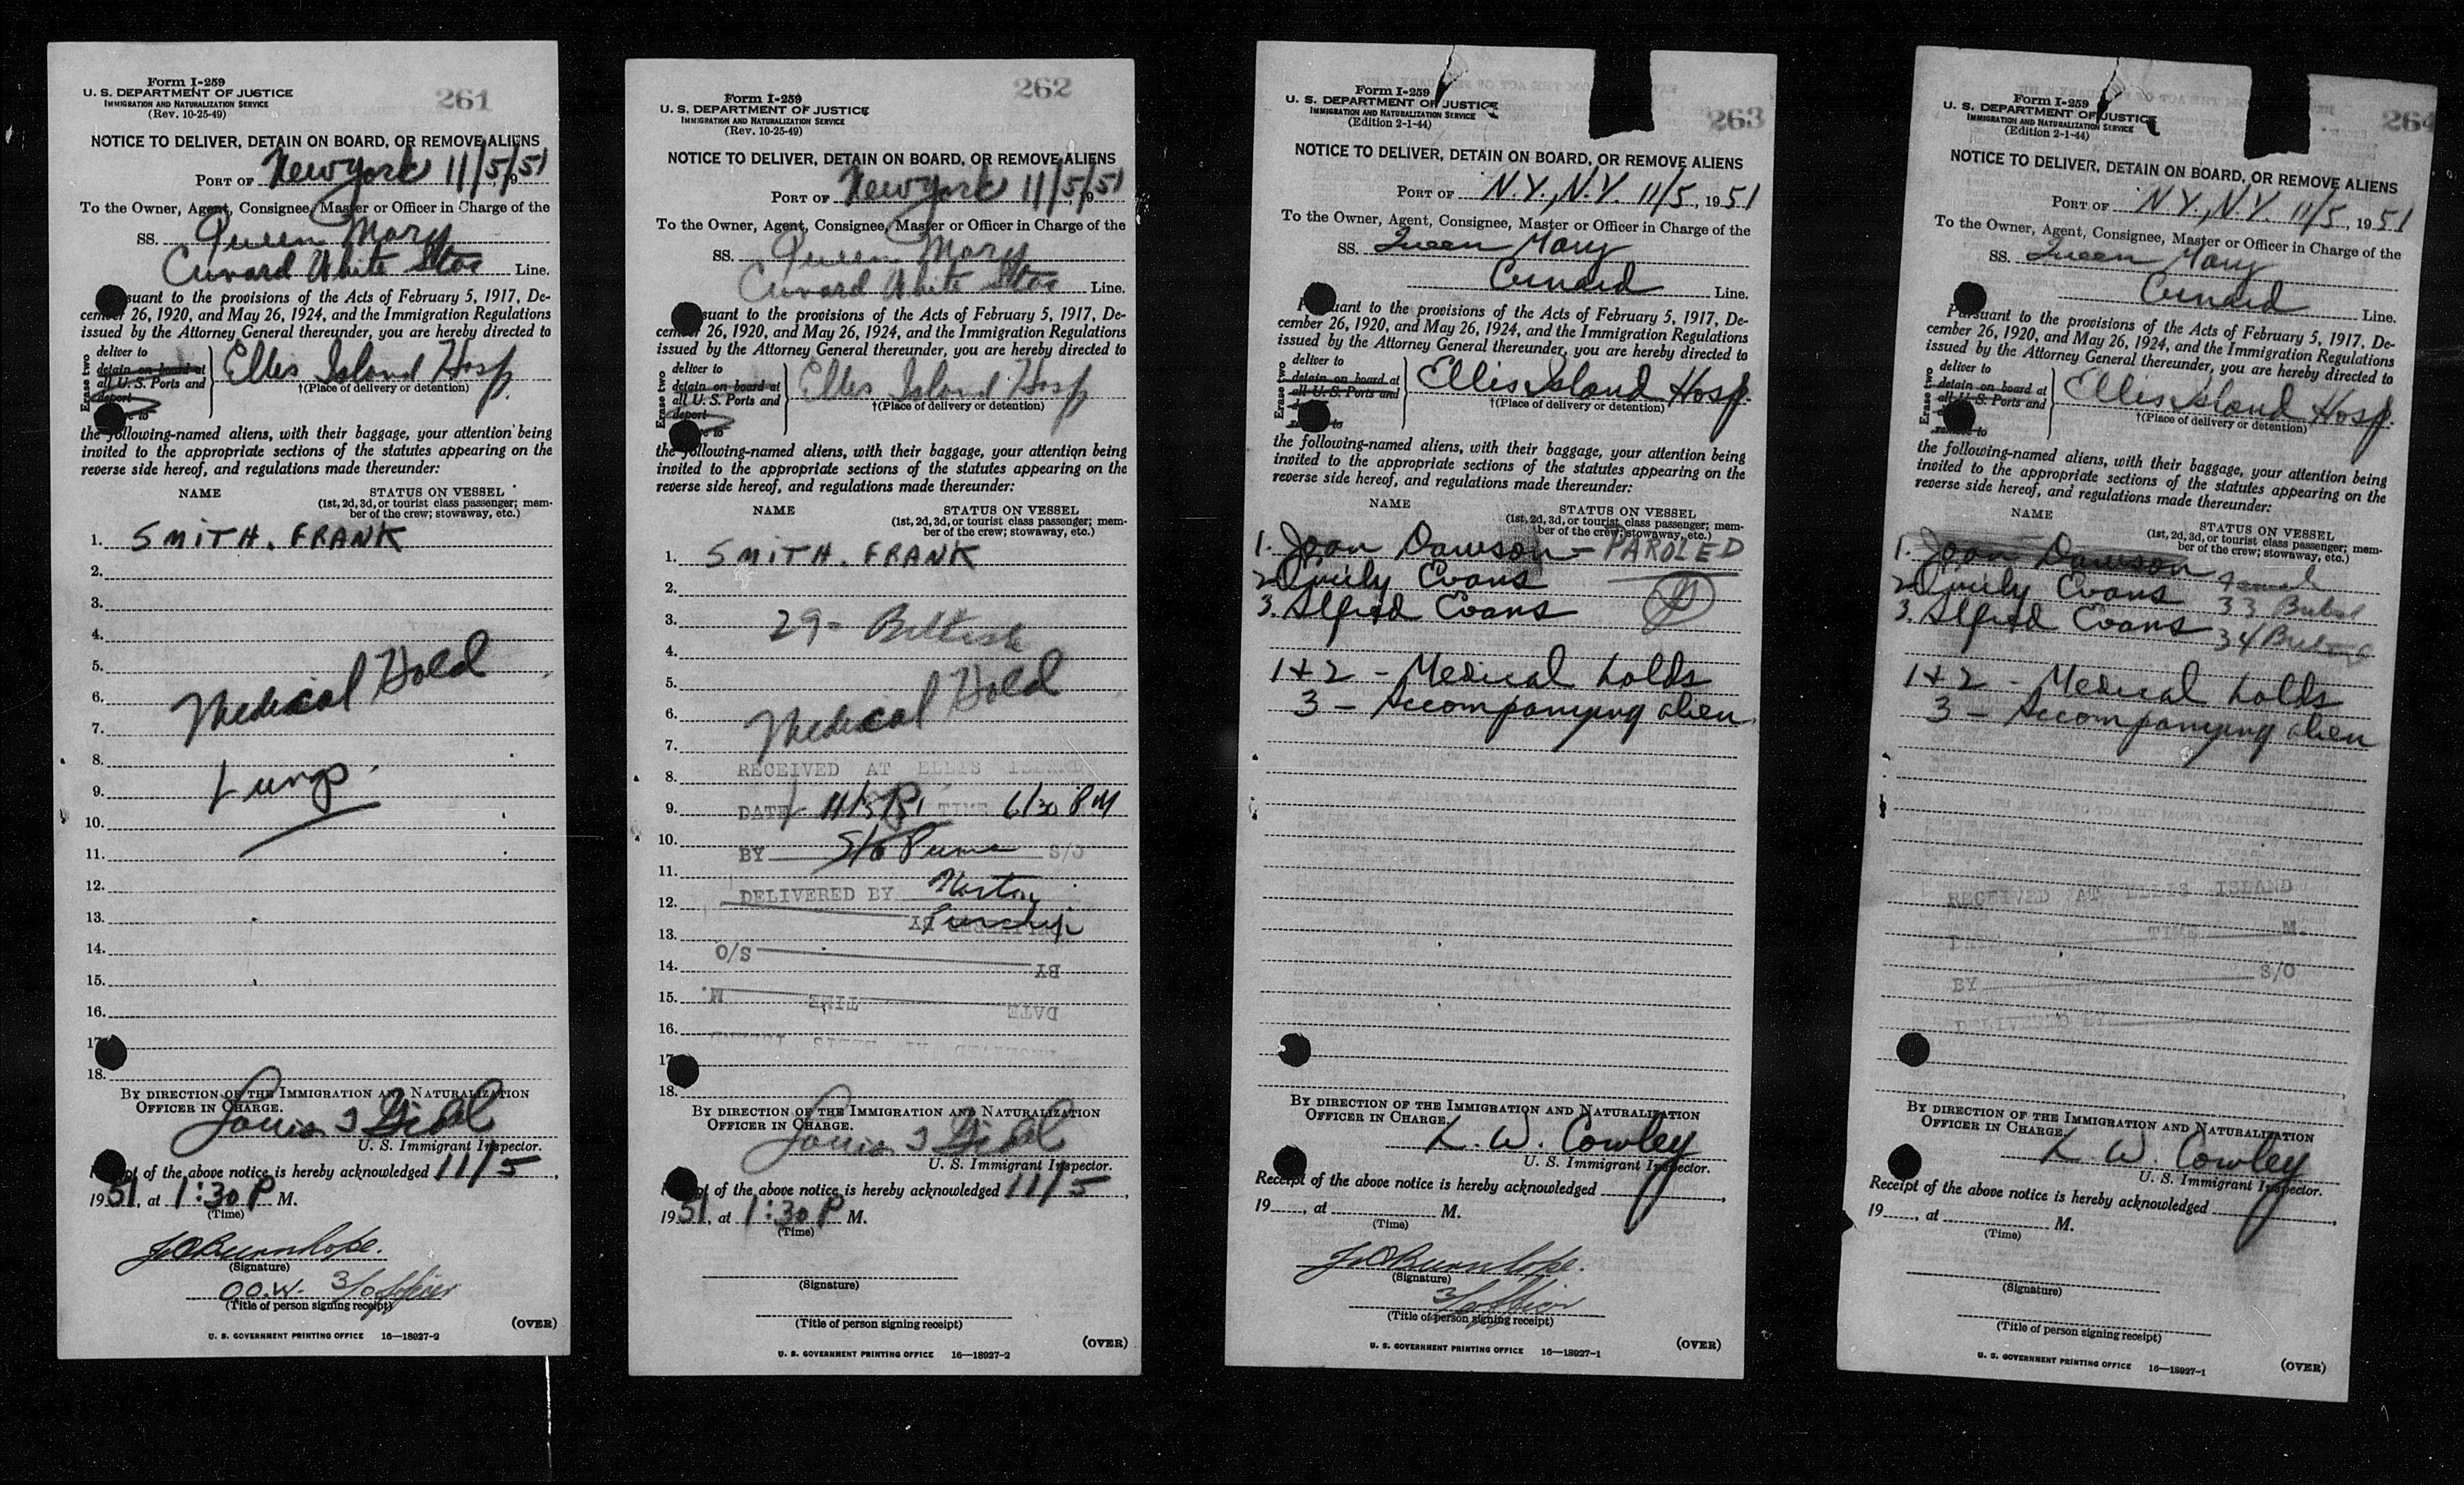 Form I-259
U. S. DEPARTMENT OF JUSTICE
IMMIGRATION AND NATURALIZATION SERVICE
(Rev. 10-25-49)
261
NOTICE TO DELIVER, DETAIN ON BOARD, OR REMOVE ALIENS
PORT OF New York 11/5/51
To the Owner, Agent, Consignee, Master or Officer in Charge of the
SS. Queen Mary
Cunard White Star Line.
suant to the provisions of the Acts of February 5, 1917, De-
cember 26, 1920, and May 26, 1924, and the Immigration Regulations
issued by the Attorney General thereunder, you are hereby directed to
Erase two
deliver to
detain on board at
all U. S. Ports and
deport
Ellis Island Hosp.
†(Place of delivery or detention)
the following-named aliens, with their baggage, your attention being
invited to the appropriate sections of the statutes appearing on the
reverse side hereof, and regulations made thereunder:
NAME STATUS ON VESSEL
(1st, 2d, 3d, or tourist class passenger; mem-
ber of the crew; stowaway, etc.)
1. SMITH. FRANK
2.
3.
4.
5.
6. Medical Hold
7.
8.
9. Lungs
10.
11.
12.
13.
14.
15.
16.
17
18.
BY DIRECTION OF THE IMMIGRATION AND NATURALIZATION
OFFICER IN CHARGE.
Louis
U. S. Immigrant Inspector.
of the above notice is hereby acknowledged 11/5,
1951, at 1:30 P M.
(Time)
(Signature)
O.O.W. 3/Officer
(Title of person signing receipt)
(OVER)
U. S. GOVERNMENT PRINTING OFFICE 16—18927-2
Form I-259
U. S. DEPARTMENT OF JUSTICE
IMMIGRATION AND NATURALIZATION SERVICE
(Rev. 10-25-49)
262
NOTICE TO DELIVER, DETAIN ON BOARD, OR REMOVE ALIENS
PORT OF New York 11/5/51
To the Owner, Agent, Consignee, Master or Officer in Charge of the
SS. Queen Mary
Cunard White Star Line.
suant to the provisions of the Acts of February 5, 1917, De-
cember 26, 1920, and May 26, 1924, and the Immigration Regulations
issued by the Attorney General thereunder, you are hereby directed to
Erase two
deliver to
detain on board at
all U. S. Ports and
deport
Ellis Island Hosp
†(Place of delivery or detention)
the following-named aliens, with their baggage, your attention being
invited to the appropriate sections of the statutes appearing on the
reverse side hereof, and regulations made thereunder:
NAME STATUS ON VESSEL
(1st, 2d, 3d, or tourist class passenger; mem-
ber of the crew; stowaway, etc.)
1. SMITH. FRANK
2.
3. 29- British
4.
5.
6. Medical Hold
7.
8. RECEIVED AT ELLIS ISLAND
9. DATE 11/5/51 TIME 6/30 PM
10.
BY S/O S/O
11.
12. DELIVERED BY
13. DELIVERED BY
14. S/O BY
15. M. TIME DATE
16.
17
18.
BY DIRECTION OF THE IMMIGRATION AND NATURALIZATION
OFFICER IN CHARGE.
Louis
U. S. Immigrant Inspector.
of the above notice is hereby acknowledged 11/5,
1951, at 1:30 P M.
(Time)
(Signature)
(Title of person signing receipt)
(OVER)
U. S. GOVERNMENT PRINTING OFFICE 16—18927-2
Form I-259
U. S. DEPARTMENT OF JUSTICE
IMMIGRATION AND NATURALIZATION SERVICE
(Edition 2-1-44)
263
NOTICE TO DELIVER, DETAIN ON BOARD, OR REMOVE ALIENS
PORT OF N.Y., N.Y. 11/5, 1951
To the Owner, Agent, Consignee, Master or Officer in Charge of the
SS. Queen Mary
Cunard Line.
Pursuant to the provisions of the Acts of February 5, 1917, De-
cember 26, 1920, and May 26, 1924, and the Immigration Regulations
issued by the Attorney General thereunder, you are hereby directed to
Erase two
deliver to
detain on board at
all U. S. Ports and
Ellis Island Hosp.
†(Place of delivery or detention)
the following-named aliens, with their baggage, your attention being
invited to the appropriate sections of the statutes appearing on the
reverse side hereof, and regulations made thereunder:
NAME STATUS ON VESSEL
(1st, 2d, 3d, or tourist class passenger; mem-
ber of the crew; stowaway, etc.)
1. Joan Dawson - PAROLED
2. Emily Evans
3. Alfred Evans
1 + 2 - Medical holds
3 - Accompanying alien
BY DIRECTION OF THE IMMIGRATION AND NATURALIZATION
OFFICER IN CHARGE.
L. W. Cowley
U. S. Immigrant Inspector.
Receipt of the above notice is hereby acknowledged
19, at M.
(Time)
(Signature)
3/Officer
(Title of person signing receipt)
(OVER)
U. S. GOVERNMENT PRINTING OFFICE 16—18927-1
Form I-259
U. S. DEPARTMENT OF JUSTICE
IMMIGRATION AND NATURALIZATION SERVICE
(Edition 2-1-44)
264
NOTICE TO DELIVER, DETAIN ON BOARD, OR REMOVE ALIENS
PORT OF N.Y., N.Y. 11/5, 1951
To the Owner, Agent, Consignee, Master or Officer in Charge of the
SS. Queen Mary
Cunard Line.
Pursuant to the provisions of the Acts of February 5, 1917, De-
cember 26, 1920, and May 26, 1924, and the Immigration Regulations
issued by the Attorney General thereunder, you are hereby directed to
Erase two
deliver to
detain on board at
all U. S. Ports and
Ellis Island Hosp.
†(Place of delivery or detention)
the following-named aliens, with their baggage, your attention being
invited to the appropriate sections of the statutes appearing on the
reverse side hereof, and regulations made thereunder:
NAME STATUS ON VESSEL
(1st, 2d, 3d, or tourist class passenger; mem-
ber of the crew; stowaway, etc.)
1. Joan Dawson
2. Emily Evans 33
3. Alfred Evans 34
1 + 2 - Medical holds
3 - Accompanying alien
RECEIVED AT ELLIS ISLAND
DATE TIME M.
BY S/O
DELIVERED BY
BY DIRECTION OF THE IMMIGRATION AND NATURALIZATION
OFFICER IN CHARGE.
L. W. Cowley
U. S. Immigrant Inspector.
Receipt of the above notice is hereby acknowledged
19, at M.
(Time)
(Signature)
(Title of person signing receipt)
(OVER)
U. S. GOVERNMENT PRINTING OFFICE 16—18927-1